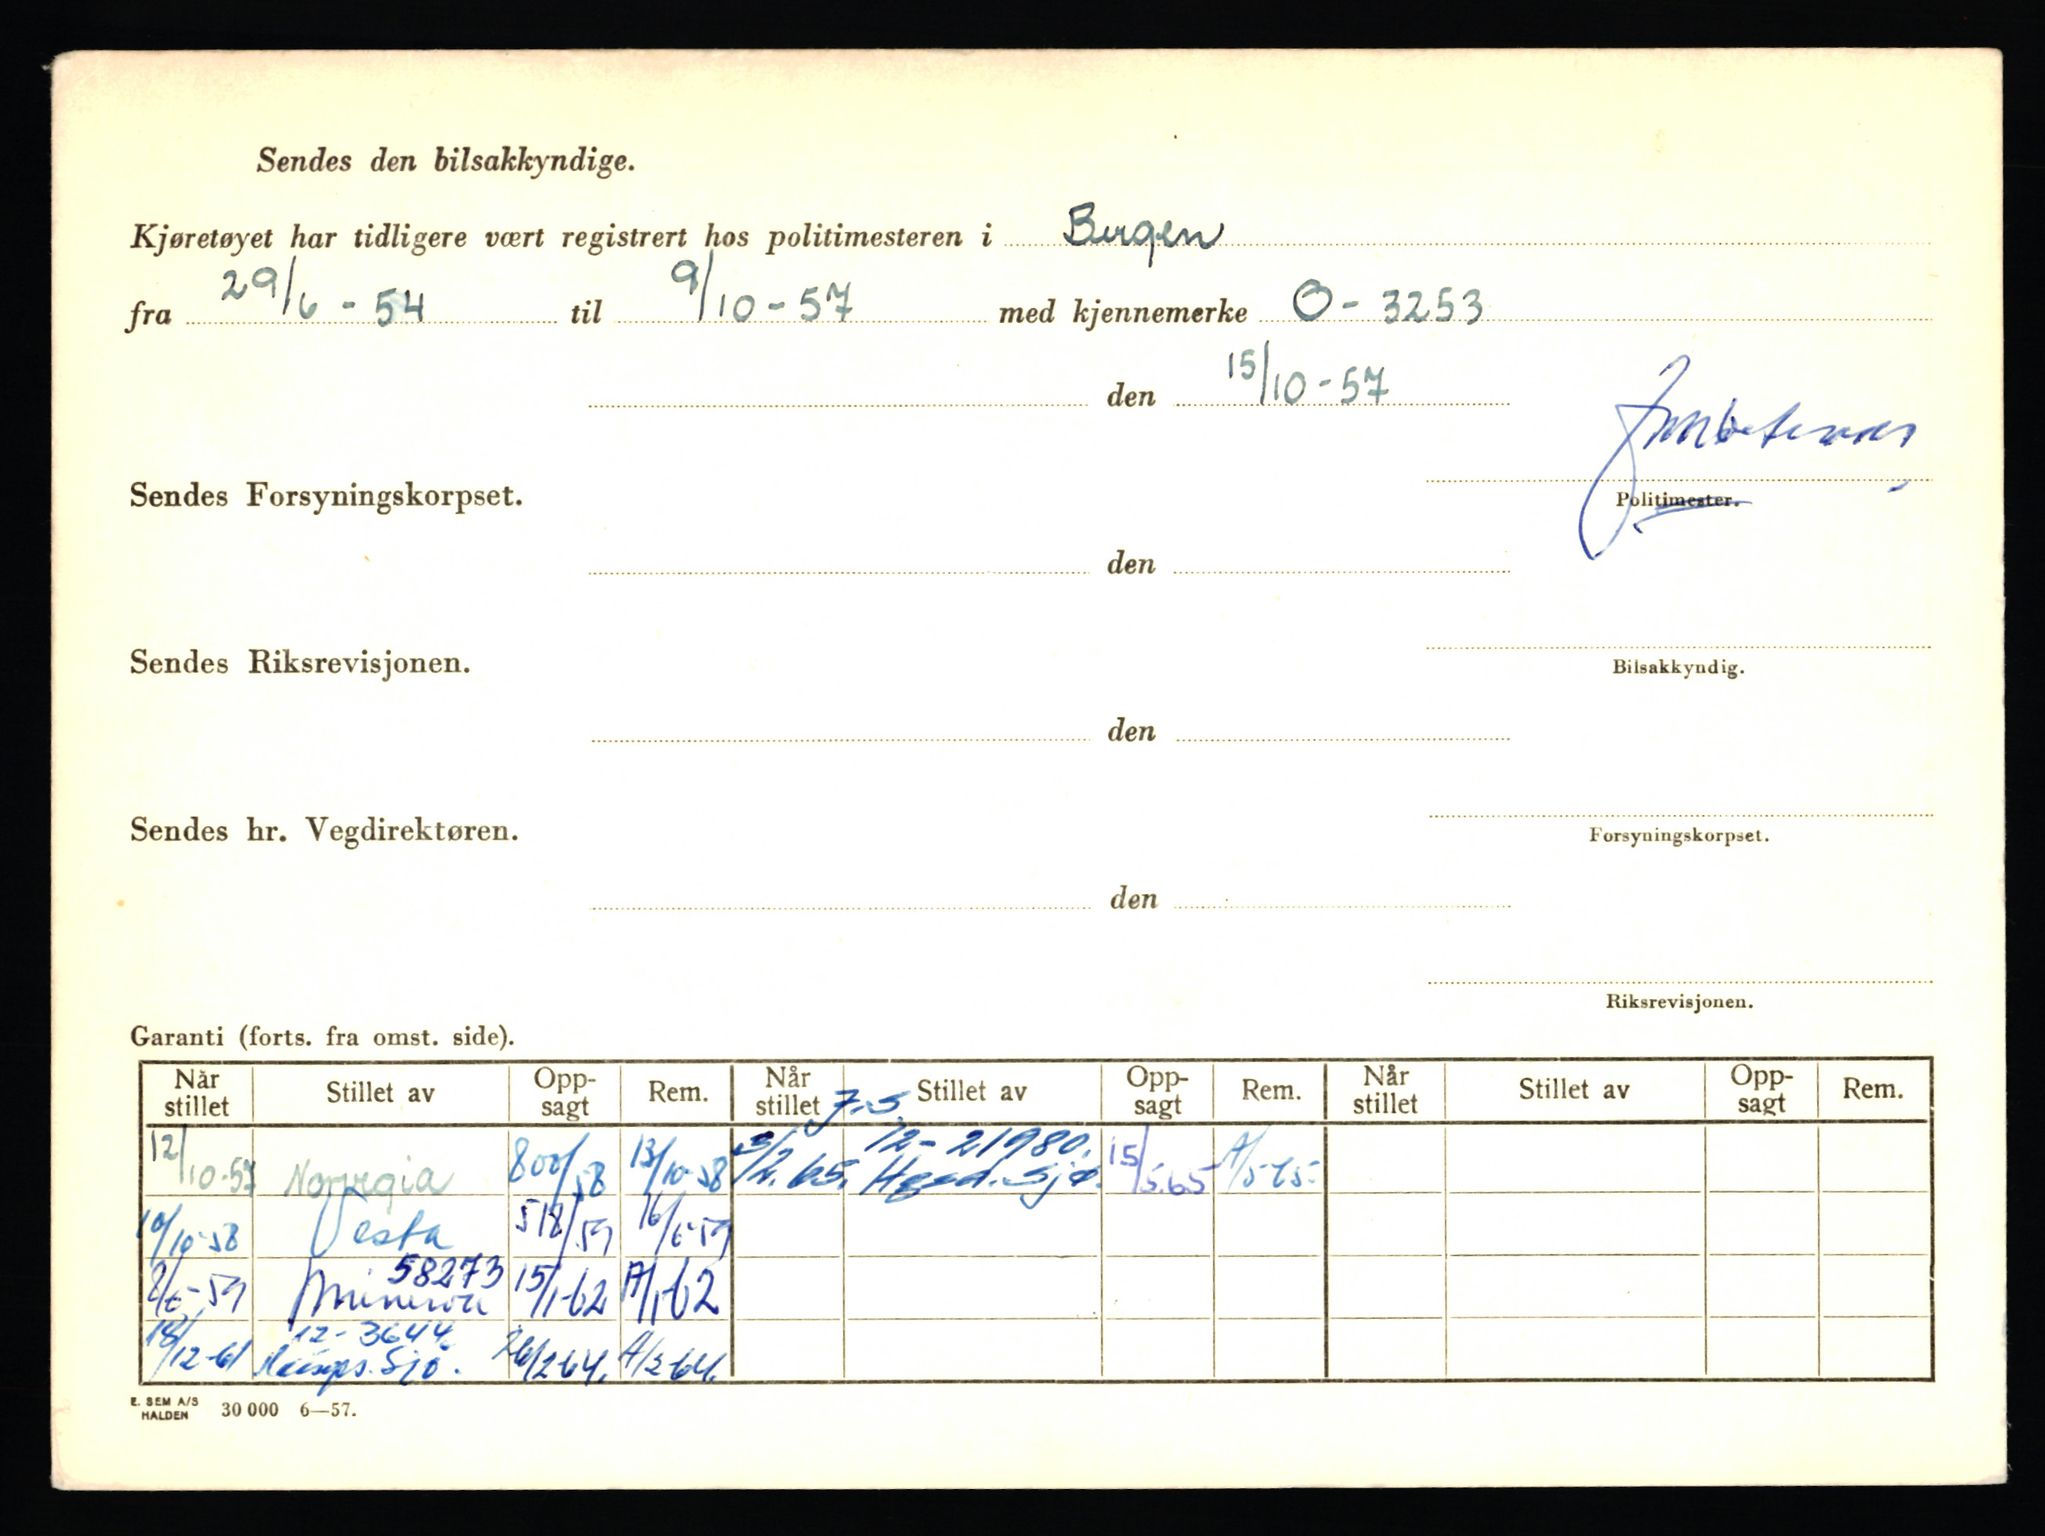 Sendes den bilsakkyndige.
Kjøretøyet har tidligere vært registrert hos politimesteren i Bergen
fra 29/6 - 54 til 9/10 - 57 med kjennemerke O - 3253
den 15/10 - 57
Sendes Forsyningskorpset.
Politimester.
den
Sendes Riksrevisjonen.
Bilsakkyndig.
den
Sendes hr. Vegdirektøren.
Forsyningskorpset.
den
Riksrevisjonen.
Garanti (forts. fra omst. side).
Når stillet Stillet av Opp-sagt Rem. Når stillet Stillet av Opp-sagt Rem. Når stillet Stillet av Opp-sagt Rem.
12/10-57 Norregia 800/58 13/10-58 3/2.65. 12-21980. 15/5.65
10/10-58 Vesta 518/59
58273
Minerva 15/1-62 A/1-62
12-3644
18/12-61 Sjø. 26/2-64. A/2-64.
E. SEM A/S
HALDEN 30 000 6—57.